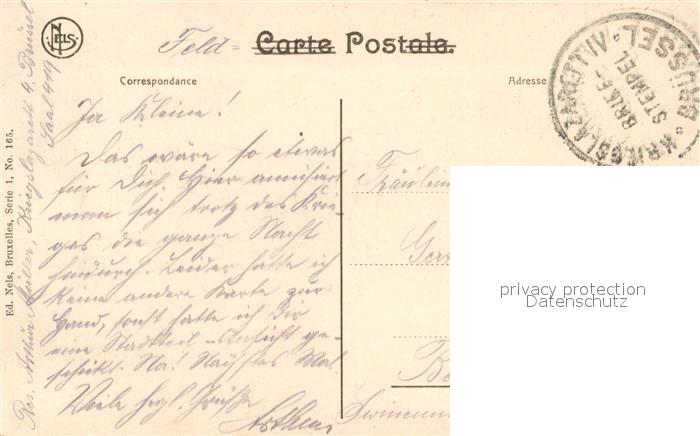 NELS
Feld= Carte Postale.
Correspondance
Adresse
KRIEGSLAZARETT
BRIEF-
STEMPEL
BRÜSSEL
Ja Kleine!
Das wäre so etwas
für Dich. Hier amüsiert
man sich trotz des Krie-
ges die ganze Nacht
hindurch. Leider hatte ich
keine andere Karte zur
Hand, sonst hätte ich Dir
eine Stadtteil-Ansicht ge-
schickt. Na! Nächstes Mal.
Viele hrzl. Grüße
Arthur
Fräulein
Swinemün
Ed. Nels, Bruxelles, Serie 1, No. 165.
Res. Arthur Müller, Kriegslazarett 4. Brüssel
Saal 419
privacy protection
Datenschutz